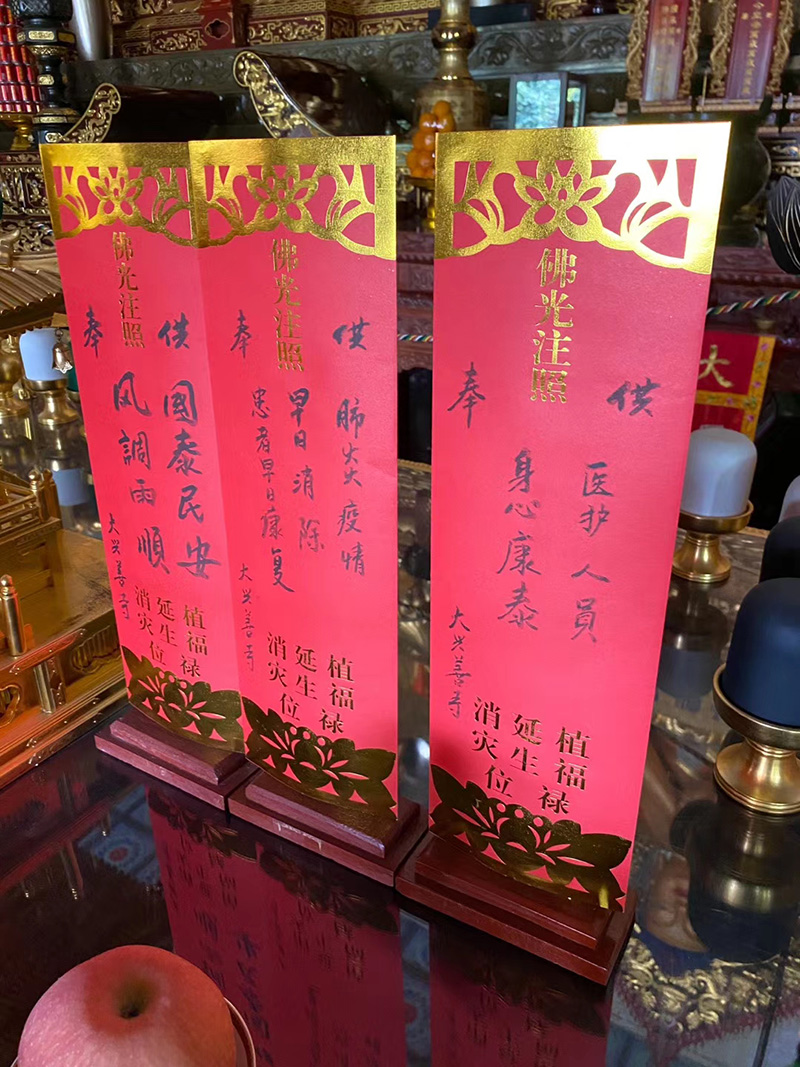 佛光注照
供奉
國泰民安
风調雨順
大兴善寺
植福
延生
消灾
禄位
佛光注照
供奉
肺炎疫情
早日消除
患者早日康复
大兴善寺
植福
延生
消灾
禄位
佛光注照
供奉
医护人員
身心康泰
大兴善寺
植福
延生
消灾
禄位
大